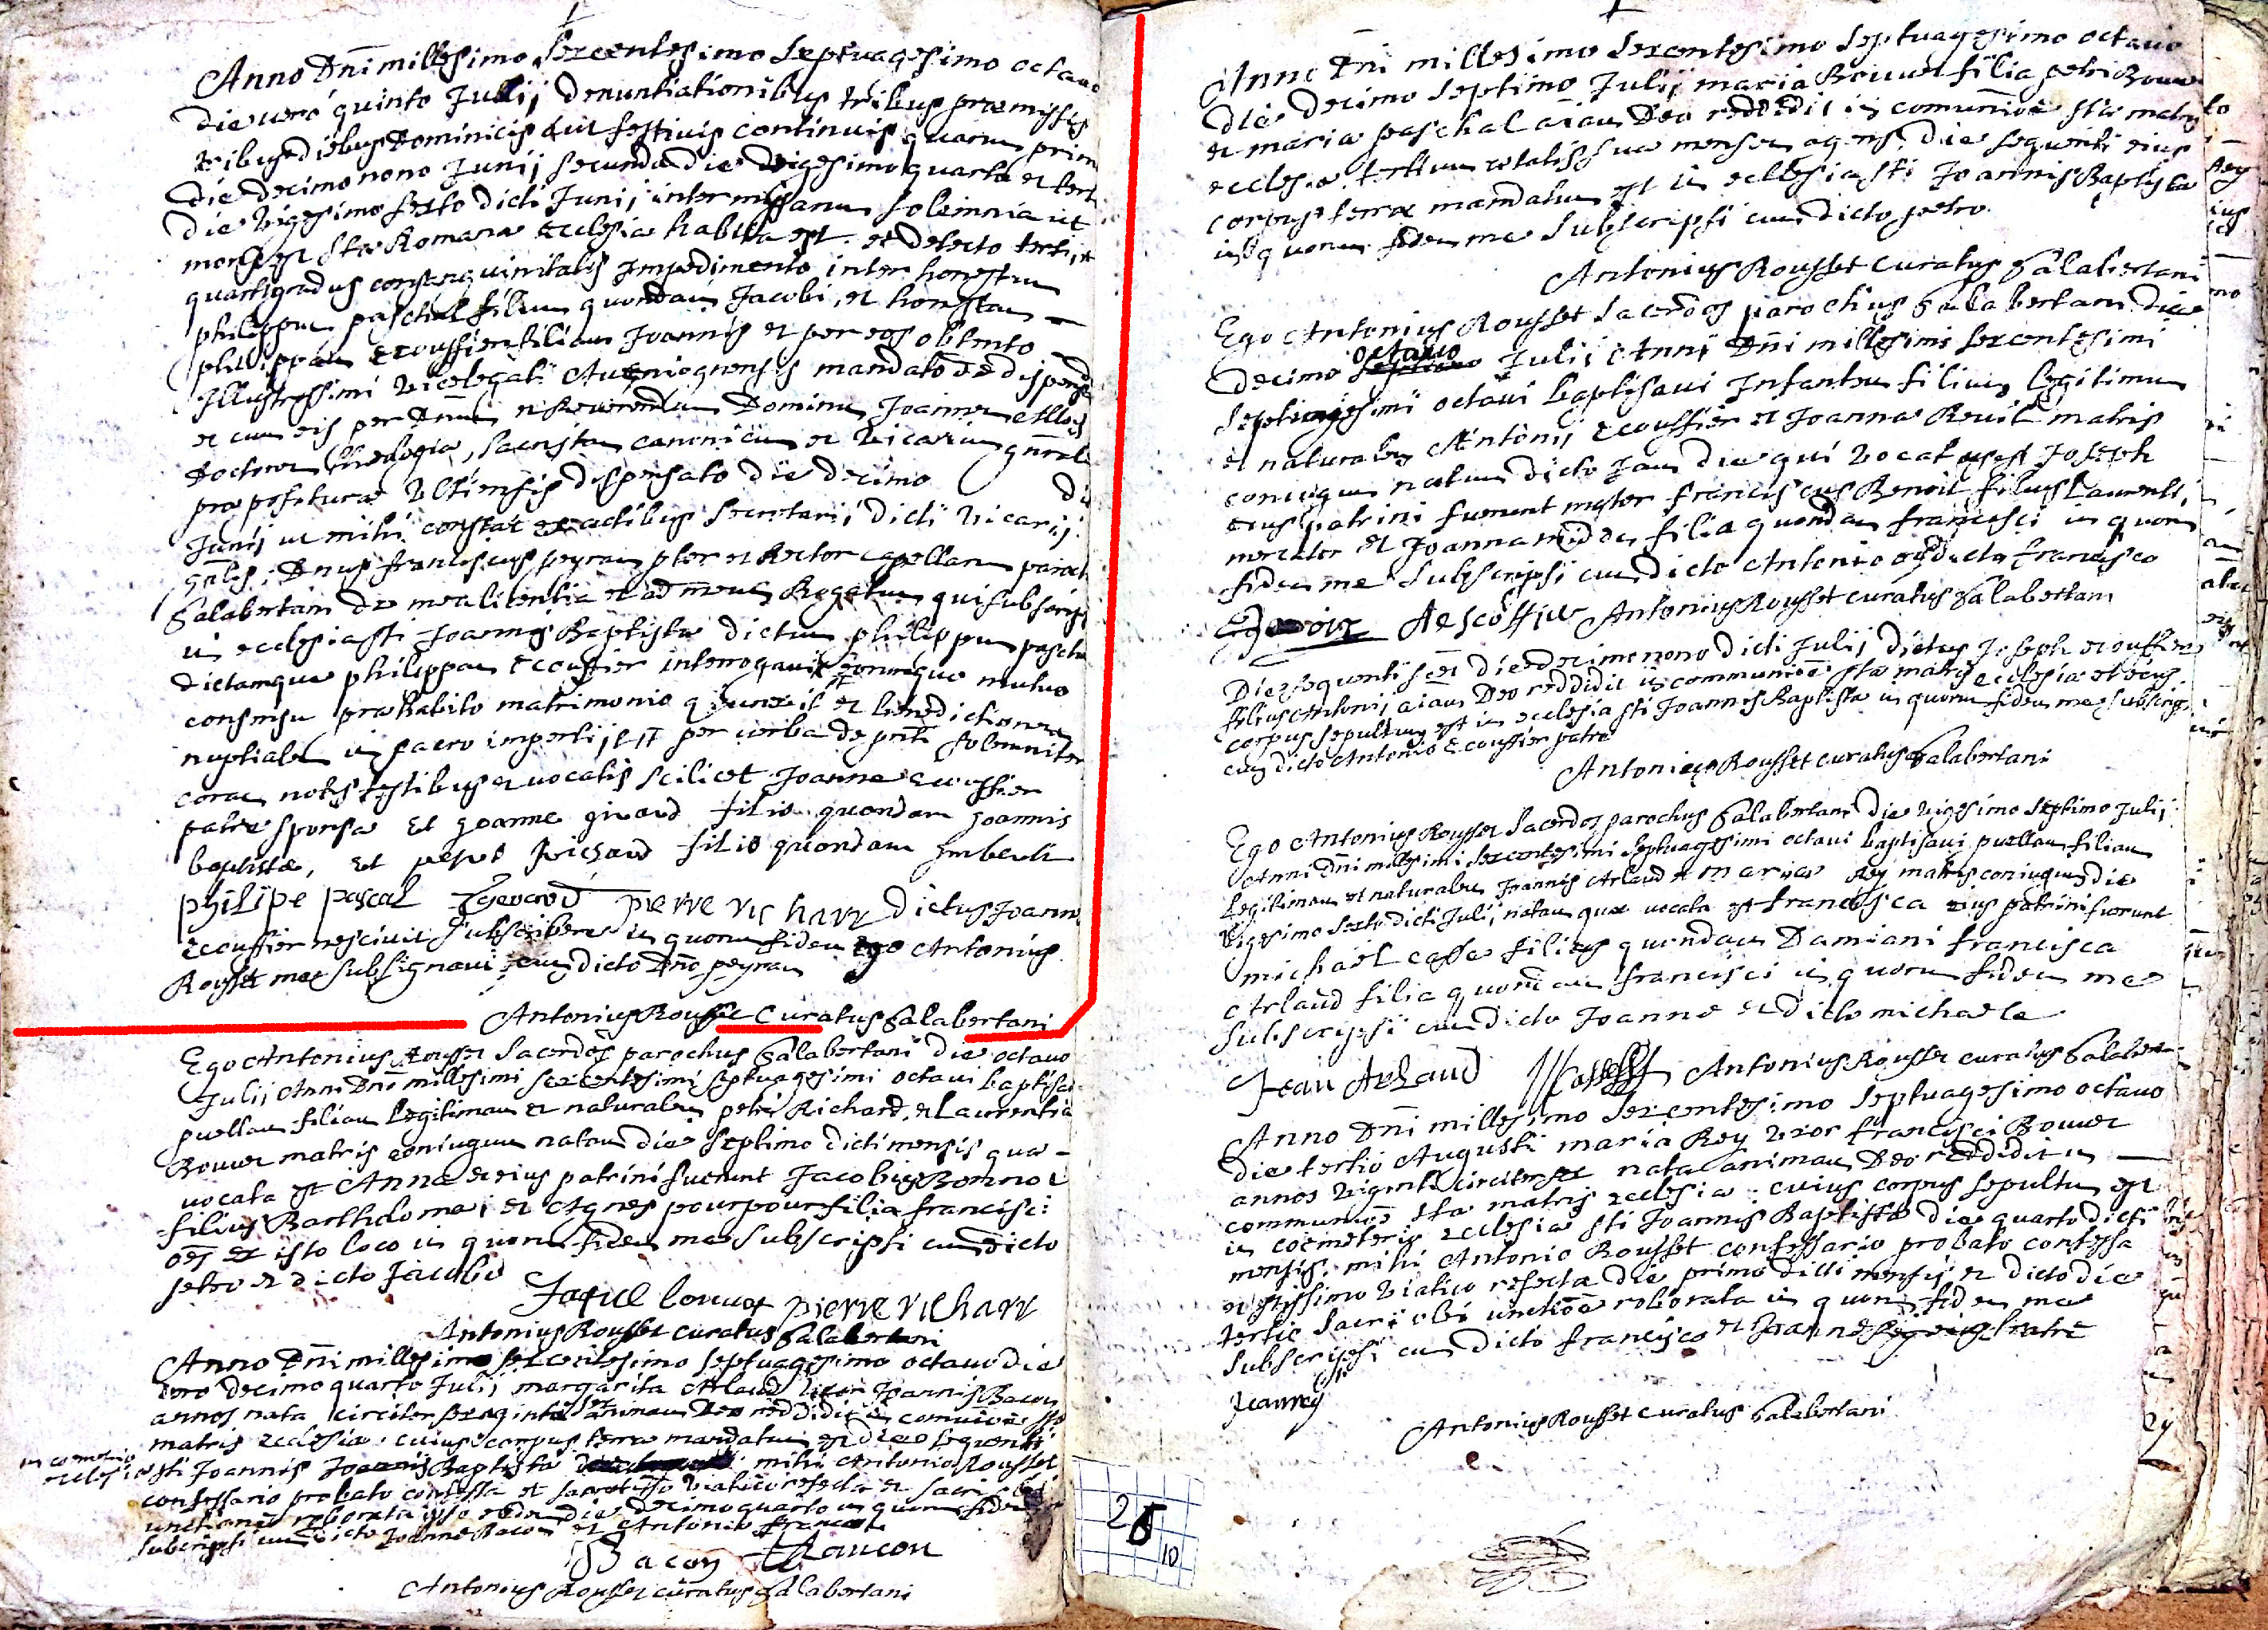 Anno Dni millesimo sexcentesimo septuagesimo octavo
die vero quinto Julij denuntiationibus tribus præmissis
tribus diebus Dominicis aut festivis continuis quarum prim
die decimo nono Junij secunda die vigesimo quarto et terti
die vigesimo sexto dicti Junij inter missarum solemnia ut
moris est Stæ Romanæ Ecclesiæ habita est et detecto tertij et
quarti gradus consanguinitatis impedimento inter honestum
philippum paschal filium quondam Jacobi, et honestam
philippam Ecouffier filiam Joannis et per eos obtento
Illustrissimi vicelegati Avenionensis mandato de dispens
et cum eis per Dnum et Reverendum Dominum Joannem
Doctorem theologiæ, sacristam canonicum et vicarium gnrale
præpositura Ultiensis dispensato die decimo
Junij ut mihi constat ex actibus secretarij dicti vicarij
gnlis; Dnus franciscus peyran pbter et Rector capellaru paroch
Salabertani de mea licentia et ad meum Rogatum qui subscrips
in ecclesia sti Joannis Baptistæ dictum philippum paschal
dictamque philippam Ecouffier interrogavit eorumque mutuo
consensu præhabito matrimonio conjunxit et benedictionem
nuptialem in sacro impertijt per verba de pnti solemniter
coram notis testibus et vocatis scilicet Joanne Ecouffier
patre sponsæ Et Joanne girard filio quondam Joannis
baptistæ, et petro Richard filio quondam Imberti
philipe pascal Pierre richarr dictus Joann
ecouffier nescivit subscribere in quorum fidem ego Antonius
Rousset me subsignavi cum dicto Dno peyran
Antonius Rousset Curatus Salabertani
Ego Antonius Rousset Sacerdos parochus Salabertani die octavo
Julij Anni Dni millesimi sexcentesimi septuagesimi octavi baptisavi
puellam filiam legitimam et naturalem petri Richard, et Laurentia
Bouvet matris coniugum natam die septimo dicti mensis quæ
vocata est Anna et eius patrini fuerunt Jacobus Bonnot
filius Bartholomei et Agnes pourpour filia francisci
oes ex isto loco in quorum fidem me subscripsi cum dicto
petro et dicto Jacobo
Pierre richarr
Antonius Rousset curatus Salabertani
Anno Dni millesimo sexcentesimo septuagesimo octavo die
vero decimo quarto Julij margarita Arlaud uxor Joannis Bacon
annos nata circiter sexaginta animam Deo reddidit in comunione stæ
matris ecclesiæ cuius corpus terræ mandatum est die sequenti
in cemeterio
ecclesiæ sti Joannis Baptistæ mihi Antonio Rousset
confessario probato confessa et sanctissimo viatico refecta et sacri olei
unctione roborata ipso eodem die decimo quarto in quorum fidem
subscripsi cum dicto Joanne Bacon et Antonio francon
Bacon francon
Antonius Rousset curatus Salabertani
Anno Dni millesimo sexcentesimo septuagesimo octavo
die decimo septimo Julij maria Bouvet filia petri Bouve
et maria paschal aiam Deo reddidit in comunione stæ matris
ecclesiæ tertium ætatis suæ mensem agens, die sequenti eius
corpus terræ mandatum est in ecclesia sti Joannis Baptistæ
in quorum fidem me subscripsi cum dicto petro
Antonius Rousset curatus Salabertani
Ego Antonius Rousset Sacerdos parochus Salabertani die
decimo octavo Julij Anni Dni millesimi sexcentesimi
septuagesimi octavi baptisavi Infantem filium legitimum
et naturalem Antonij Ecouffier et Joanna Revil matris
coniugum natum dicto Jam die qui vocatus est Joseph
eius patrini fuerunt magister franciscus Benoit filius Laurentij
mercator et Joanna filia quondam francisci in quorum
fidem me subscripsi cum dicto Antonio et dicto francisco
Antonius Rousset curatus Salabertani
Die sequenti scet die decimo nono dicti Julij dictus Joseph ecouffier
filius Antonij aiam Deo reddidit in communione stæ matris ecclesiæ et eius
corpus sepultum est in ecclesia sti Joannis Baptistæ in quorum fidem me subscripsi
cum dicto Antonio Ecouffier patre
Antonius Rousset curatus Salabertani
Ego Antonius Rousset Sacerdos parochus Salabertani die vigesimo septimo Julij
Anni Dni millesimi sexcentesimi septuagesimi octavi baptisavi puellam filiam
legitimam et naturalem Joannis Arlaud et maria Rey matris coniugum die
vigesimo sexto dicti Julij natam quæ vocata est francisca eius patrini fuerunt
michaël casse filius quondam Damiani francisca
Arlaud filia quondam francisci in quorum fidem me
subscripsi cum dicto Joanne et dicto michaele
Jean Arlaud Antonius Rousset curatus Salabertani
Anno Dni millesimo sexcentesimo septuagesimo octavo
die tertio Augusti maria Rey uxor francisci Bouvet
annos viginti circiter sex nata animam Deo reddidit in
communione stæ matris ecclesiæ cuius corpus sepultum est
in coemeterio ecclesiæ sti Joannis Baptistæ die quarto dicti
mensis. mihi Antonio Rousset confessario probato confessa
sanctissimo viatico refecta die primo dicti mensis et dicto die
tertio sacri olei unctione roborata in quorum fidem me
subscripsi cum dicto francisco et Joanne fratre
Antonius Rousset curatus Salabertani
26
10